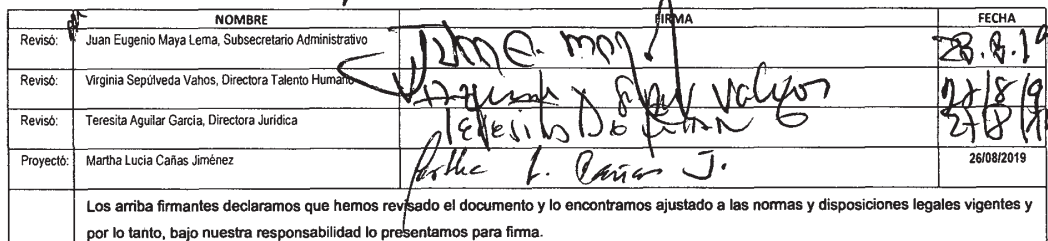 NOMBRE FIRMA FECHA
Revisó: Juan Eugenio Maya Lema, Subsecretario Administrativo 28.8.19
Revisó: Virginia Sepúlveda Vahos, Directora Talento Humano
Revisó: Teresita Aguilar García, Directora Jurídica
Proyectó: Martha Lucia Cañas Jiménez Martha L. Cañas J. 26/08/2019
Los arriba firmantes declaramos que hemos revisado el documento y lo encontramos ajustado a las normas y disposiciones legales vigentes y
por lo tanto, bajo nuestra responsabilidad lo presentamos para firma.